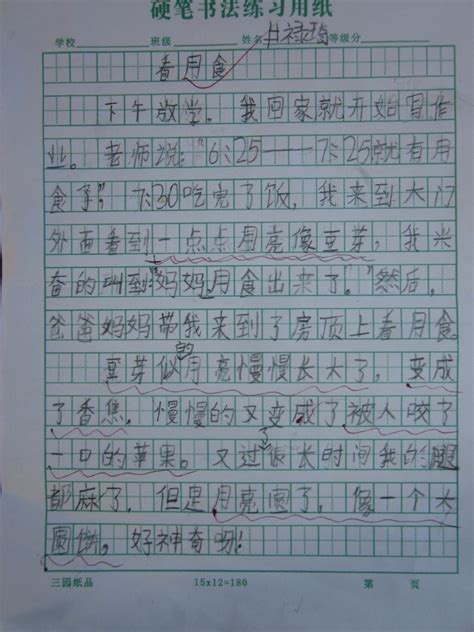 硬笔书法练习用纸
学校 班级 姓名 禄琦 等级分
看月食
下午放学。我回家就开始写作
业。老师说:“6:25——7:25就有月
食了。”7:30吃完了饭,我来到大门
外面看到一点点月亮像豆芽,我兴
奋的叫到:“妈妈,月食出来了。”然后,
爸爸妈妈带我来到了房顶上看月食。
豆芽似的月亮慢慢长大了,变成
了香焦,慢慢的又变成了被人咬了
一口的苹果。又过了很长时间我的腿
都麻了,但是月亮圆了,像一个大
圆饼,好神奇呀!
三园纸品 15x12=180 第 页